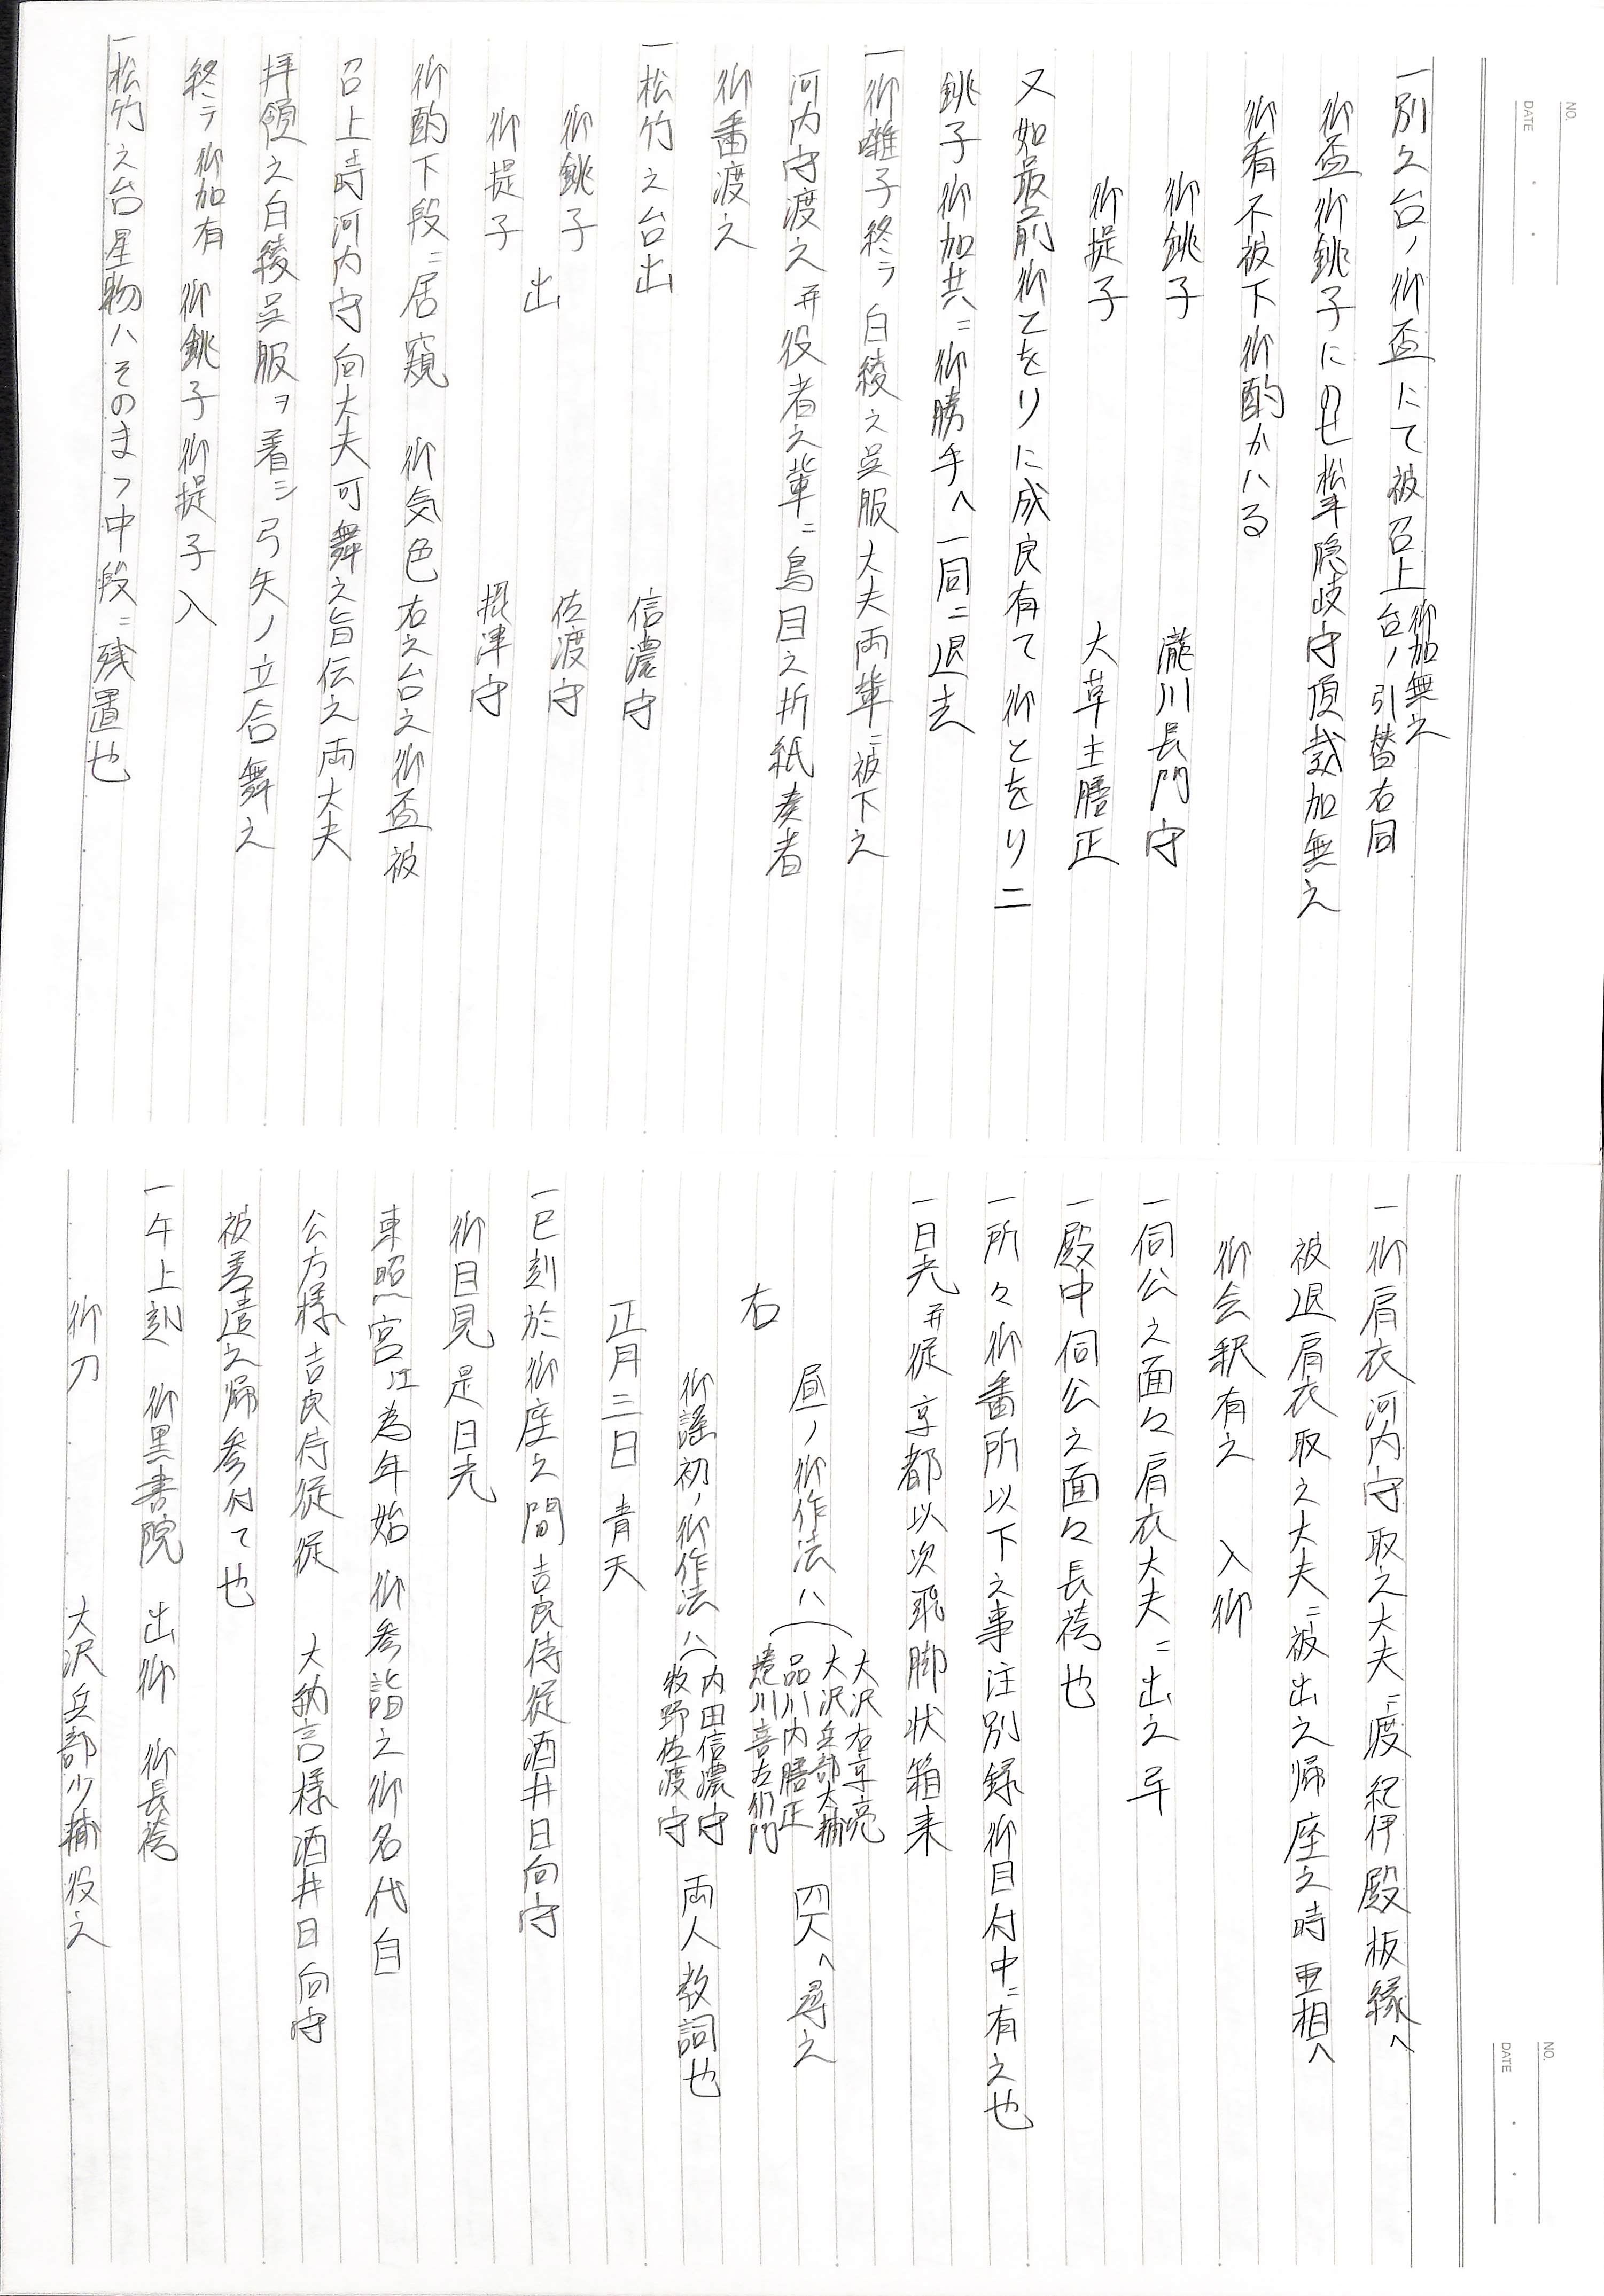 NO.
DATE
一別之台ノ御盃にて被召上 御加無之
台ノ引替右同
御盃御銚子にのせ松平隠岐守頂戴加無之
御肴不被下御酌かハる
御銚子 瀧川長門守
御提子 大草主膳正
又如最前御てをりに成良有て御とをり二
銚子御加共ニ御勝手へ一同ニ退去
一御囃子終ラ白綾之呉服大夫両輩ニ被下之
河内守渡之并役者之輩ニ鳥目之折紙奏者
御番渡之
一松竹之台出 信濃守
御銚子 佐渡守
出
御提子 摂津守
御酌下段ニ居窺 御気色右之台之御盃被
召上時河内守向大夫可舞之旨伝之両大夫
拝領之白綾呉服ヲ着シ弓矢ノ立合舞之
終テ御加有 御銚子御提子入
一松竹之台星物ハそのまゝ中段ニ残置也
NO.
DATE
一御肩衣河内守取之大夫ニ渡紀伊殿板縁へ
被退肩衣取之大夫ニ被出之帰座之時亜相へ
御会釈有之 入御
一伺公之面々肩衣大夫ニ出之畢
一殿中伺公之面々長袴也
一所々御番所以下之事注別録御目付中ニ有之也
一日光并従京都以次飛脚状箱来
右
昼ノ御作法ハ 大沢右京亮
大沢兵部大輔
品川内膳正
蜷川喜左衛門 四人へ尋之
御謡初ノ御作法ハ 内田信濃守
牧野佐渡守 両人教詞也
正月三日 青天
一巳刻於御座之間吉良侍従酒井日向守
御目見是日光
東照宮江為年始御参詣之御名代自
公方様吉良侍従従 大納言様酒井日向守
被差遣之帰参付て也
一午上刻 御黒書院 出御 御長袴
御刀 大沢兵部少輔役之